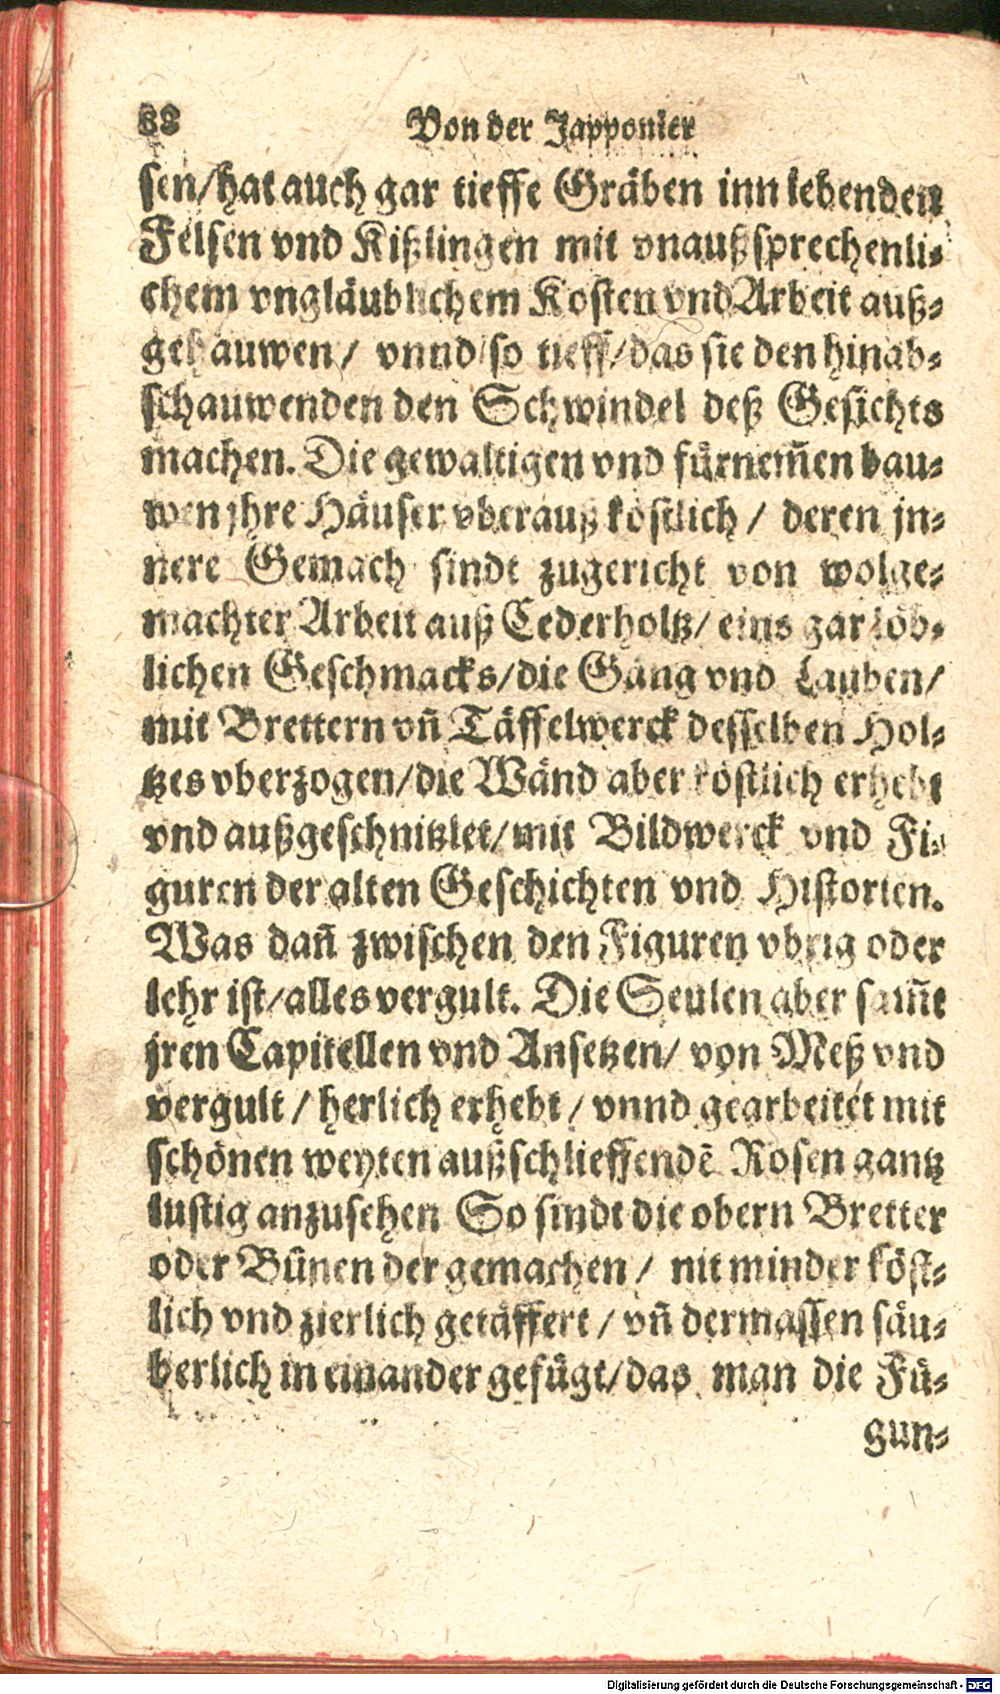 88 Von der Japponier
sen/hat auch gar tieffe Gräben inn lebenden
Felsen vnd Kißlingen mit vnaußsprechenli-
chem vngläublichem Kosten vnd Arbeit auß-
gehauwen/ vnnd so tieff/das sie den hinab-
schauwenden den Schwindel deß Gesichts
machen. Die gewaltigen vnd fürnem̃en bau-
wen jhre Häuser vberauß köstlich/ deren jn-
nere Gemach sindt zugericht von wolge-
machter Arbeit auß Cederholtz/ eins gar löb-
lichen Geschmacks/die Gäng vnd Lauben/
mit Brettern vñ Täffelwerck desselben Hol-
tzes vberzogen/die Wänd aber köstlich erhebt
vnd außgeschnitzlet/mit Bildwerck vnd Fi-
guren der alten Geschichten vnd Historien.
Was dañ zwischen den Figuren vbrig oder
lehr ist/alles vergult. Die Seulen aber sam̃t
jren Capitellen vnd Ansetzen/ von Meß vnd
vergult/ herlich erhebt/ vnnd gearbeitet mit
schönen weyten außschlieffendẽ Rosen gantz
lustig anzusehen So sindt die obern Bretter
oder Bünen der gemachen/ nit minder köst-
lich vnd zierlich getäffert/ vñ dermassen säu-
berlich in einander gefügt/das man die Fü-
gun-
Digitalisierung gefördert durch die Deutsche Forschungsgemeinschaft - DFG